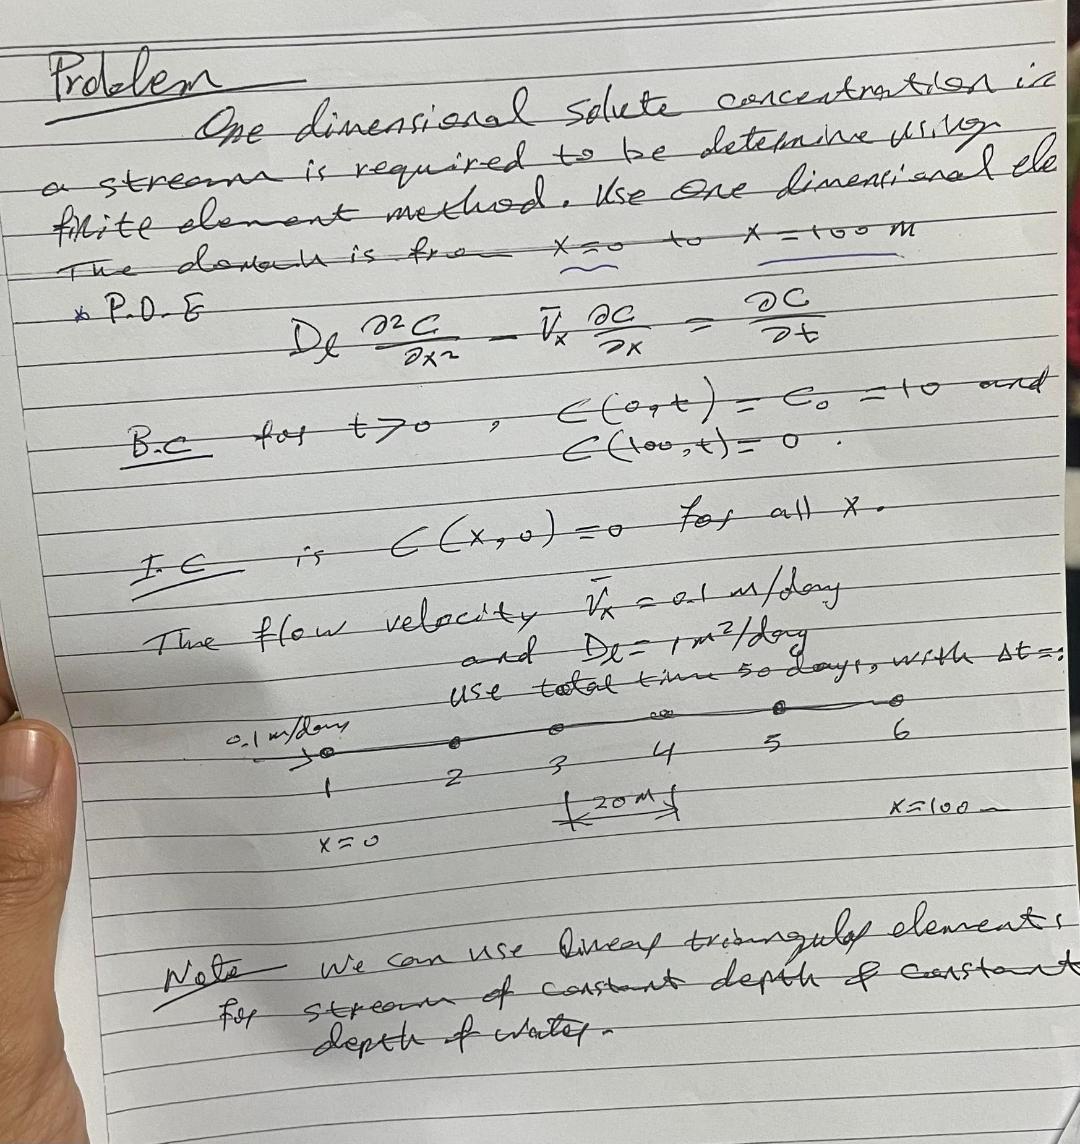 Problem
One dimensional solute concentration in
a stream is required to be determine using
finite element method. Use one dimensional ele
The domain is from x=0 to x=100 m
* P.D.E
De ∂²C/∂x² - V̄x ∂C/∂x = ∂C/∂t
B.C for t>0, C(0,t) = C₀ = 10 and
C(100,t) = 0.
I.C is C(x,0) = 0 for all x.
The flow velocity V̄x = 0.1 m/day
and De = 1 m²/day
use total time 50 days, with Δt =
0.1 m/day
1 2 3 4 5 6
20 m
x=0 x=100 m
Note We can use linear triangular elements
for stream of constant depth & constant
depth of water.